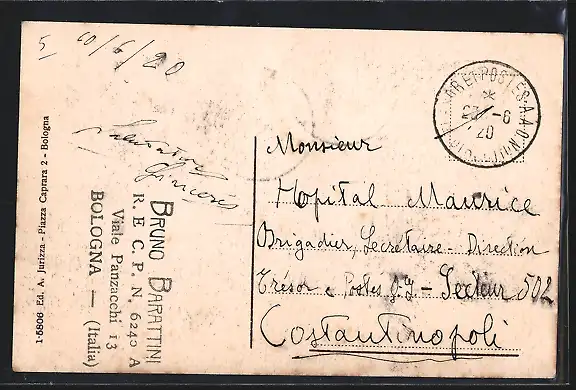 5
20/6/20
Salvatore
BRUNO BARATTINI
R. E. C. P. N. 6240 A
Viale Panzacchi 13
BOLOGNA — (Italia)
1-5806 Ed. A. Jurizza - Piazza Caprara 2 - Bologna
POSTES
*
-6
20
Monsieur
Hopital Maurice
Brigadier, Secretaire - Direction
Trésor e Postes O.I - Secteur 502
Costantinopoli